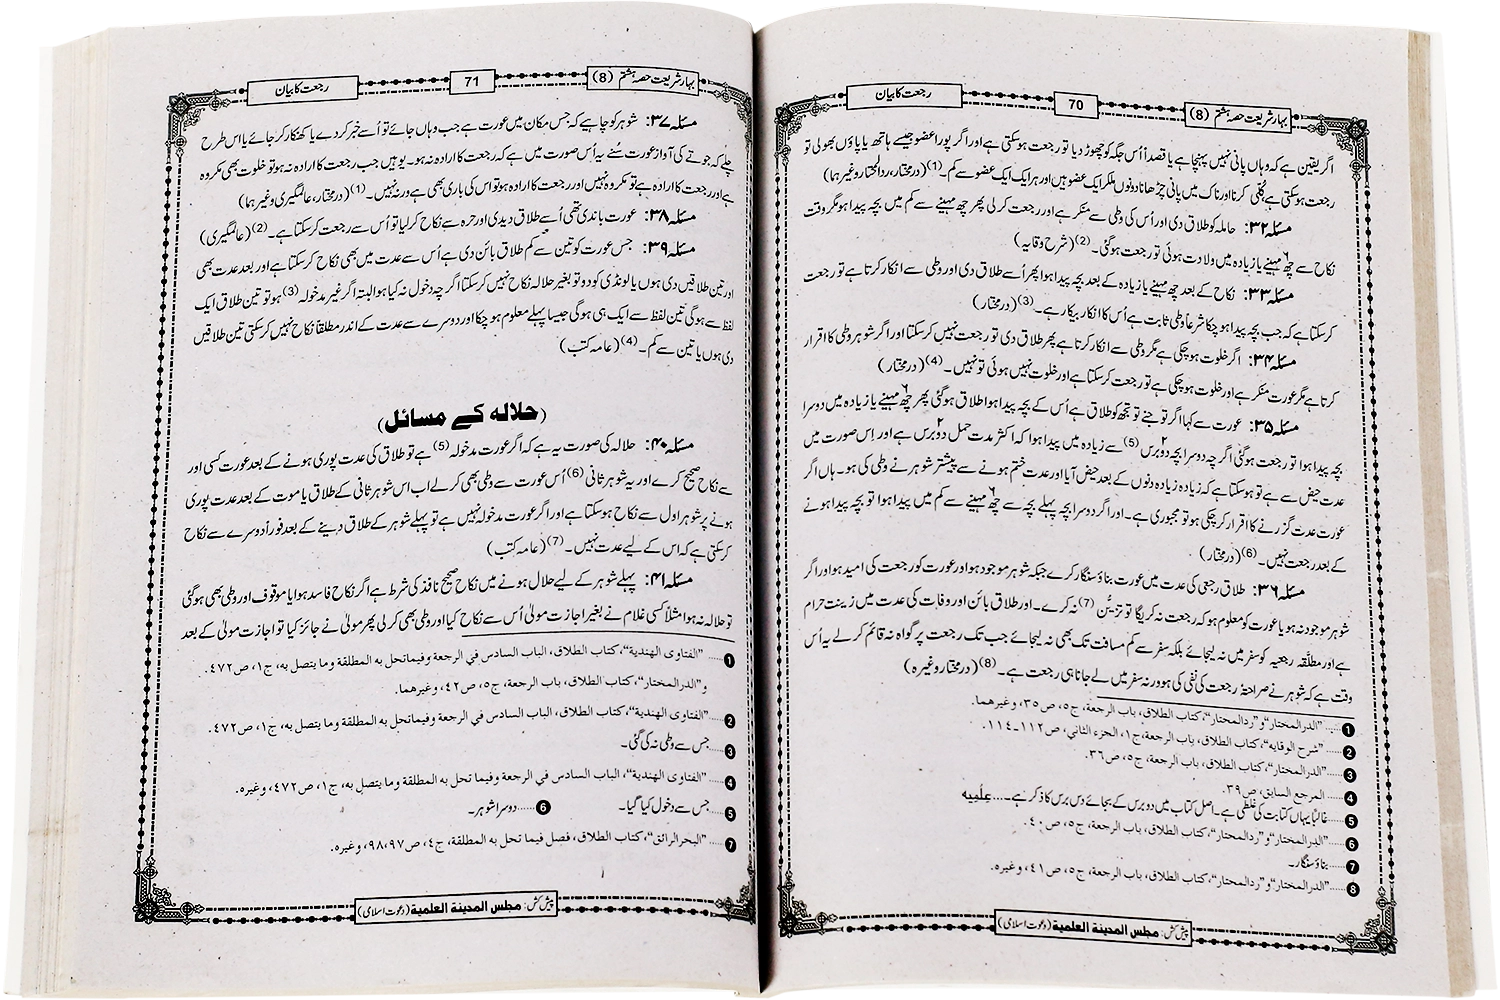 بہارِ شریعت حصہ ہشتم (8)
70
رجعت کا بیان
اگر یقین ہے کہ وہاں پانی نہیں پہنچا ہے یا قصداً اُس جگہ کو چھوڑ دیا تو رجعت ہو سکتی ہے اور اگر پورا عضو جیسے ہاتھ یا پاؤں بھولی تو
رجعت ہو سکتی ہے، کُلّی کرنا اور ناک میں پانی چڑھانا دونوں ملکر ایک عضو ہیں اور ہر ایک ایک عضو سے کم۔(1) (درمختار، ردالمحتار وغیرہما)
مسئلہ ۳۲: حاملہ کو طلاق دی اور اُس کی وطی سے منکر ہے اور رجعت کر لی پھر چھ مہینے سے کم میں بچہ پیدا ہوا مگر وقت
نکاح سے چھ ۶ مہینے یا زیادہ میں ولادت ہوئی تو رجعت ہو گئی۔(2) (شرح وقایہ)
مسئلہ ۳۳: نکاح کے بعد چھ مہینے یا زیادہ کے بعد بچہ پیدا ہوا پھر اُسے طلاق دی اور وطی سے انکار کرتا ہے تو رجعت
کر سکتا ہے کہ جب بچہ پیدا ہو چکا شرعاً وطی ثابت ہے اُس کا انکار بیکار ہے۔(3) (درمختار)
مسئلہ ۳۴: اگر خلوت ہو چکی ہے مگر وطی سے انکار کرتا ہے پھر طلاق دی تو رجعت نہیں کر سکتا اور اگر شوہر وطی کا اقرار
کرتا ہے مگر عورت منکر ہے اور خلوت ہو چکی ہے تو رجعت کر سکتا ہے اور خلوت نہیں ہوئی تو نہیں۔(4) (درمختار)
مسئلہ ۳۵: عورت سے کہا اگر تو جنے تو تجھ کو طلاق ہے اُس کے بچہ پیدا ہوا طلاق ہو گئی پھر چھ ۶ مہینے یا زیادہ میں دوسرا
بچہ پیدا ہوا تو رجعت ہو گئی اگرچہ دوسرا بچہ دو ۲ برس (5) سے زیادہ میں پیدا ہوا کہ اکثر مدت حمل دو ۲ برس ہے اور اِس صورت میں
عدت حیض سے ہے تو ہو سکتا ہے کہ زیادہ زیادہ دنوں کے بعد حیض آیا اور عدت ختم ہونے سے پیشتر شوہر نے وطی کی ہو۔ ہاں اگر
عورت عدت گزرنے کا اقرار کر چکی ہو تو مجبوری ہے۔ اور اگر دوسرا بچہ پہلے بچہ سے چھ ۶ مہینے سے کم میں پیدا ہوا تو بچہ پیدا ہونے
کے بعد رجعت نہیں۔(6) (درمختار)
مسئلہ ۳۶: طلاق رجعی کی عدت میں عورت بناؤ سنگار کرے جبکہ شوہر موجود ہو اور عورت کو رجعت کی امید ہو اور اگر
شوہر موجود نہ ہو یا عورت کو معلوم ہو کہ رجعت نہ کریگا تو تزیّن (7) نہ کرے۔ اور طلاق بائن اور وفات کی عدت میں زینت حرام
ہے اور مطلقہ رجعیہ کو سفر میں نہ لیجائے بلکہ سفر سے کم مسافت تک بھی نہ لیجائے جب تک رجعت پر گواہ نہ قائم کر لے یہ اُس
وقت ہے کہ شوہر نے صراحۃً رجعت کی نفی کی ہو ورنہ سفر میں لے جانا ہی رجعت ہے۔(8) (درمختار وغیرہ)
1 ......"الدرالمختار" و"ردالمحتار"، کتاب الطلاق، باب الرجعة، ج٥، ص٣٥، وغیرهما.
2 ......"شرح الوقایه"، کتاب الطلاق، باب الرجعة، ج١، الجزء الثانی، ص١١٢-١١٤.
3 ......"الدرالمختار"، کتاب الطلاق، باب الرجعة، ج٥، ص٣٦.
4 ......المرجع السابق، ص٣٩.
5 ......غالباً یہاں کتابت کی غلطی ہے۔ اصل کتاب میں دو برس کے بجائے دس برس کا ذکر ہے۔... عِلْمِیه
6 ......"الدرالمختار" و"ردالمحتار"، کتاب الطلاق، باب الرجعة، ج٥، ص٤٠.
7 ......بناؤ سنگار۔
8 ......"الدرالمختار" و"ردالمحتار"، کتاب الطلاق، باب الرجعة، ج٥، ص٤١، وغیره.
پیش کش: مجلس المدینة العلمیة (دعوت اسلامی)
بہارِ شریعت حصہ ہشتم (8)
71
رجعت کا بیان
مسئلہ ۳۷: شوہر کو چاہیے کہ جس مکان میں عورت ہے جب وہاں جائے تو اُسے خبر کر دے یا کھنکار کر جائے یا اس طرح
چلے کہ جوتے کی آواز عورت سُنے یہ اُس صورت میں ہے کہ رجعت کا ارادہ نہ ہو۔ یوہیں جب رجعت کا ارادہ نہ ہو تو خلوت بھی مکروہ
ہے اور رجعت کا ارادہ ہے تو مکروہ نہیں اور رجعت کا ارادہ ہو تو اس کی باری بھی ہے ورنہ نہیں۔(1) (درمختار، عالمگیری وغیرہما)
مسئلہ ۳۸: عورت باندی تھی اُسے طلاق دیدی اور حرہ سے نکاح کر لیا تو اُس سے رجعت کر سکتا ہے۔(2) (عالمگیری)
مسئلہ ۳۹: جس عورت کو تین سے کم طلاق بائن دی ہے اُس سے عدت میں بھی نکاح کر سکتا ہے اور بعد عدت بھی
اور تین طلاقیں دی ہوں یا لونڈی کو دو تو بغیر حلالہ نکاح نہیں کر سکتا اگرچہ دخول نہ کیا ہو البتہ اگر غیر مدخولہ (3) ہو تو تین طلاق ایک
لفظ سے ہوگی تین لفظ سے ایک ہی ہوگی جیسا پہلے معلوم ہو چکا اور دوسرے سے عدت کے اندر مطلقاً نکاح نہیں کر سکتی تین طلاقیں
دی ہوں یا تین سے کم۔(4) (عامہ کتب)
(حلالہ کے مسائل)
مسئلہ ۴۰: حلالہ کی صورت یہ ہے کہ اگر عورت مدخولہ (5) ہے تو طلاق کی عدت پوری ہونے کے بعد عورت کسی اور
سے نکاح صحیح کرے اور یہ شوہر ثانی (6) اُس عورت سے وطی بھی کر لے اب اس شوہر ثانی کے طلاق یا موت کے بعد عدت پوری
ہونے پر شوہر اول سے نکاح ہو سکتا ہے اور اگر عورت مدخولہ نہیں ہے تو پہلے شوہر کے طلاق دینے کے بعد فوراً دوسرے سے نکاح
کر سکتی ہے کہ اس کے لیے عدت نہیں۔(7) (عامہ کتب)
مسئلہ ۴۱: پہلے شوہر کے لیے حلال ہونے میں نکاح صحیح نافذ کی شرط ہے اگر نکاح فاسد ہوا یا موقوف اور وطی بھی ہو گئی
تو حلالہ نہ ہوا مثلاً کسی غلام نے بغیر اجازت مولیٰ اُس سے نکاح کیا اور وطی بھی کر لی پھر مولیٰ نے جائز کیا تو اجازت مولیٰ کے بعد
1 ......"الفتاوی الهندیة"، کتاب الطلاق، الباب السادس فی الرجعة وفیماتحل به المطلقة وما یتصل به، ج١، ص٤٧٢.
و"الدرالمختار"، کتاب الطلاق، باب الرجعة، ج٥، ص٤٢، وغیرهما.
2 ......"الفتاوی الهندیة"، کتاب الطلاق، الباب السادس فی الرجعة وفیماتحل به المطلقة وما یتصل به، ج١، ص٤٧٢.
3 ......جس سے وطی نہ کی گئی۔
4 ......"الفتاوی الهندیة"، کتاب الطلاق، الباب السادس فی الرجعة وفیما تحل به المطلقة وما یتصل به، ج١، ص٤٧٢، وغیره.
5 ......جس سے دخول کیا گیا۔ 6 ......دوسرا شوہر۔
7 ......"البحرالرائق"، کتاب الطلاق، فصل فیما تحل به المطلقة، ج٤، ص٩٧،٩٨، وغیره.
پیش کش: مجلس المدینة العلمیة (دعوت اسلامی)